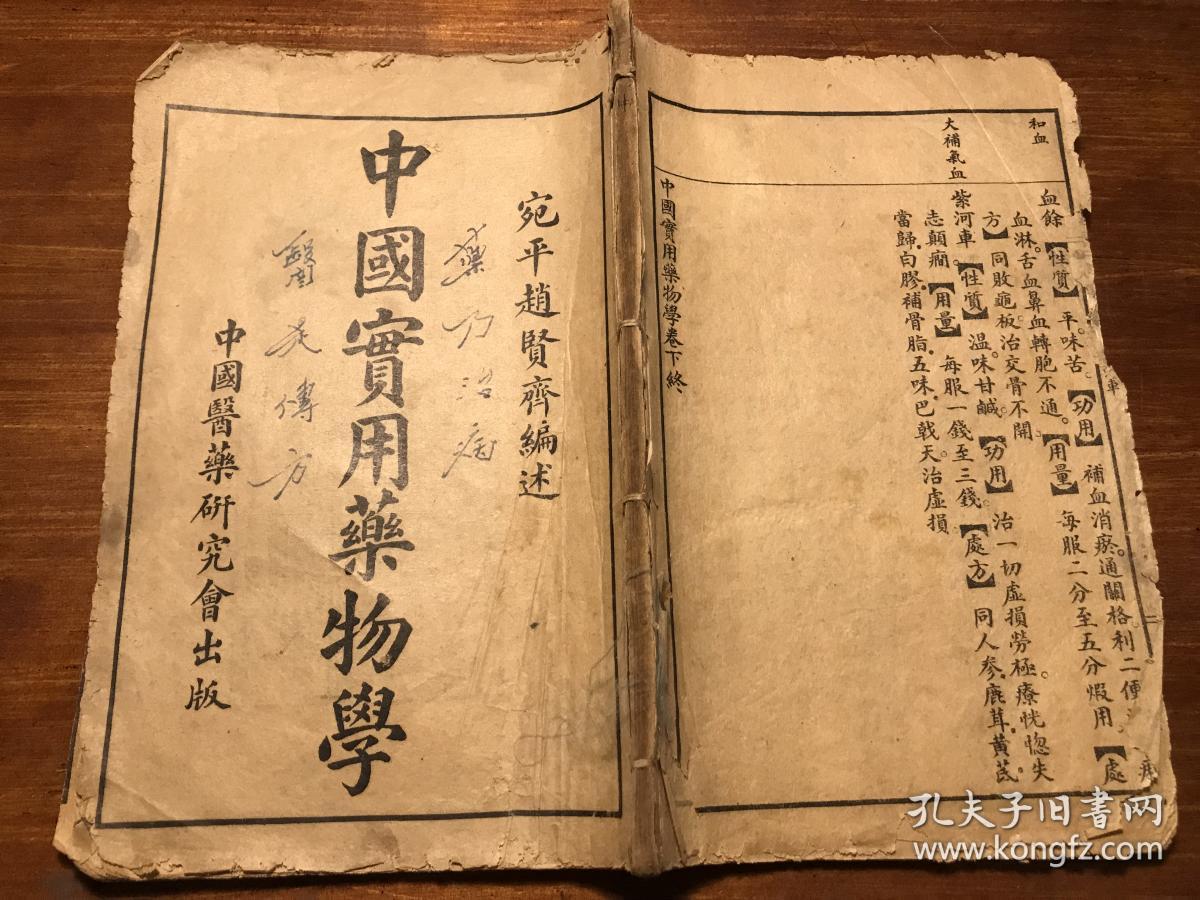 和血
大補氣血
血餘【性質】平。味苦。【功用】補血消瘀。通關格利二便
血淋。舌血鼻血轉胞不通。【用量】每服二分至五分煆用。【處
方】同敗龜板治交骨不開
紫河車。【性質】溫。味甘鹹。【功用】治一切虛損勞極。療恍惚失
志顛癎。【用量】每服一錢至三錢。【處方】同人參.鹿茸.黃茋.
當歸.白膠.補骨脂.五味.巴戟天治虛損
中國實用藥物學卷下終
車
二
宛平趙賢齊編述
藥乃治病
中國實用藥物學
醫 傳方
中國醫藥硏究會出版
孔夫子旧书网
www.kongfz.com